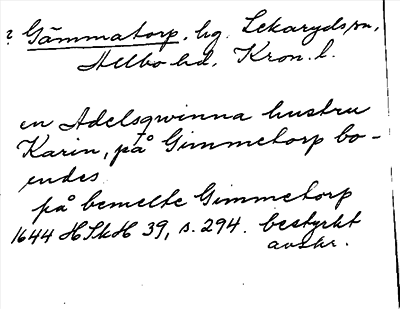 ? Gämmatorp, hg. Lekaryds sn,
Allbo hd, Kron. l.
en Adelsqwinna hustru
Karin, på Gimmetorp bo-
endes
på bemelte Gimmetorp
1644 HSkH 39, s. 294. bestyrkt
avskr.